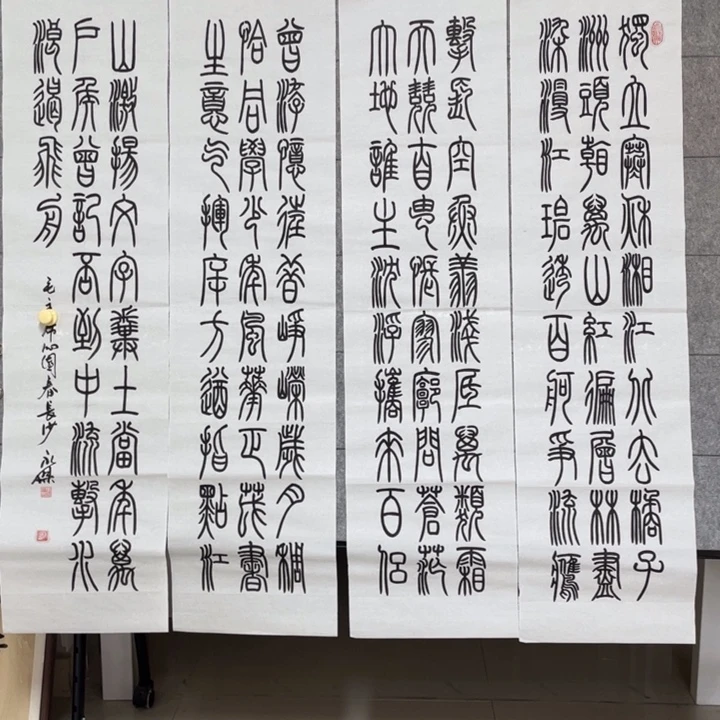 獨立寒秋湘江北去橘子
洲頭看萬山紅徧層林盡
染漫江碧透百舸爭流鷹
擊長空魚翔淺底萬類霜
天競自由悵寥廓問蒼茫
大地誰主沈浮攜來百侶
曾游憶往昔崢嶸歲月稠
恰同學少年風華正茂書
生意气揮斥方遒指點江
山激揚文字糞土當年萬
戶侯曾記否到中流擊水
浪遏飛舟
毛主席沁園春長沙